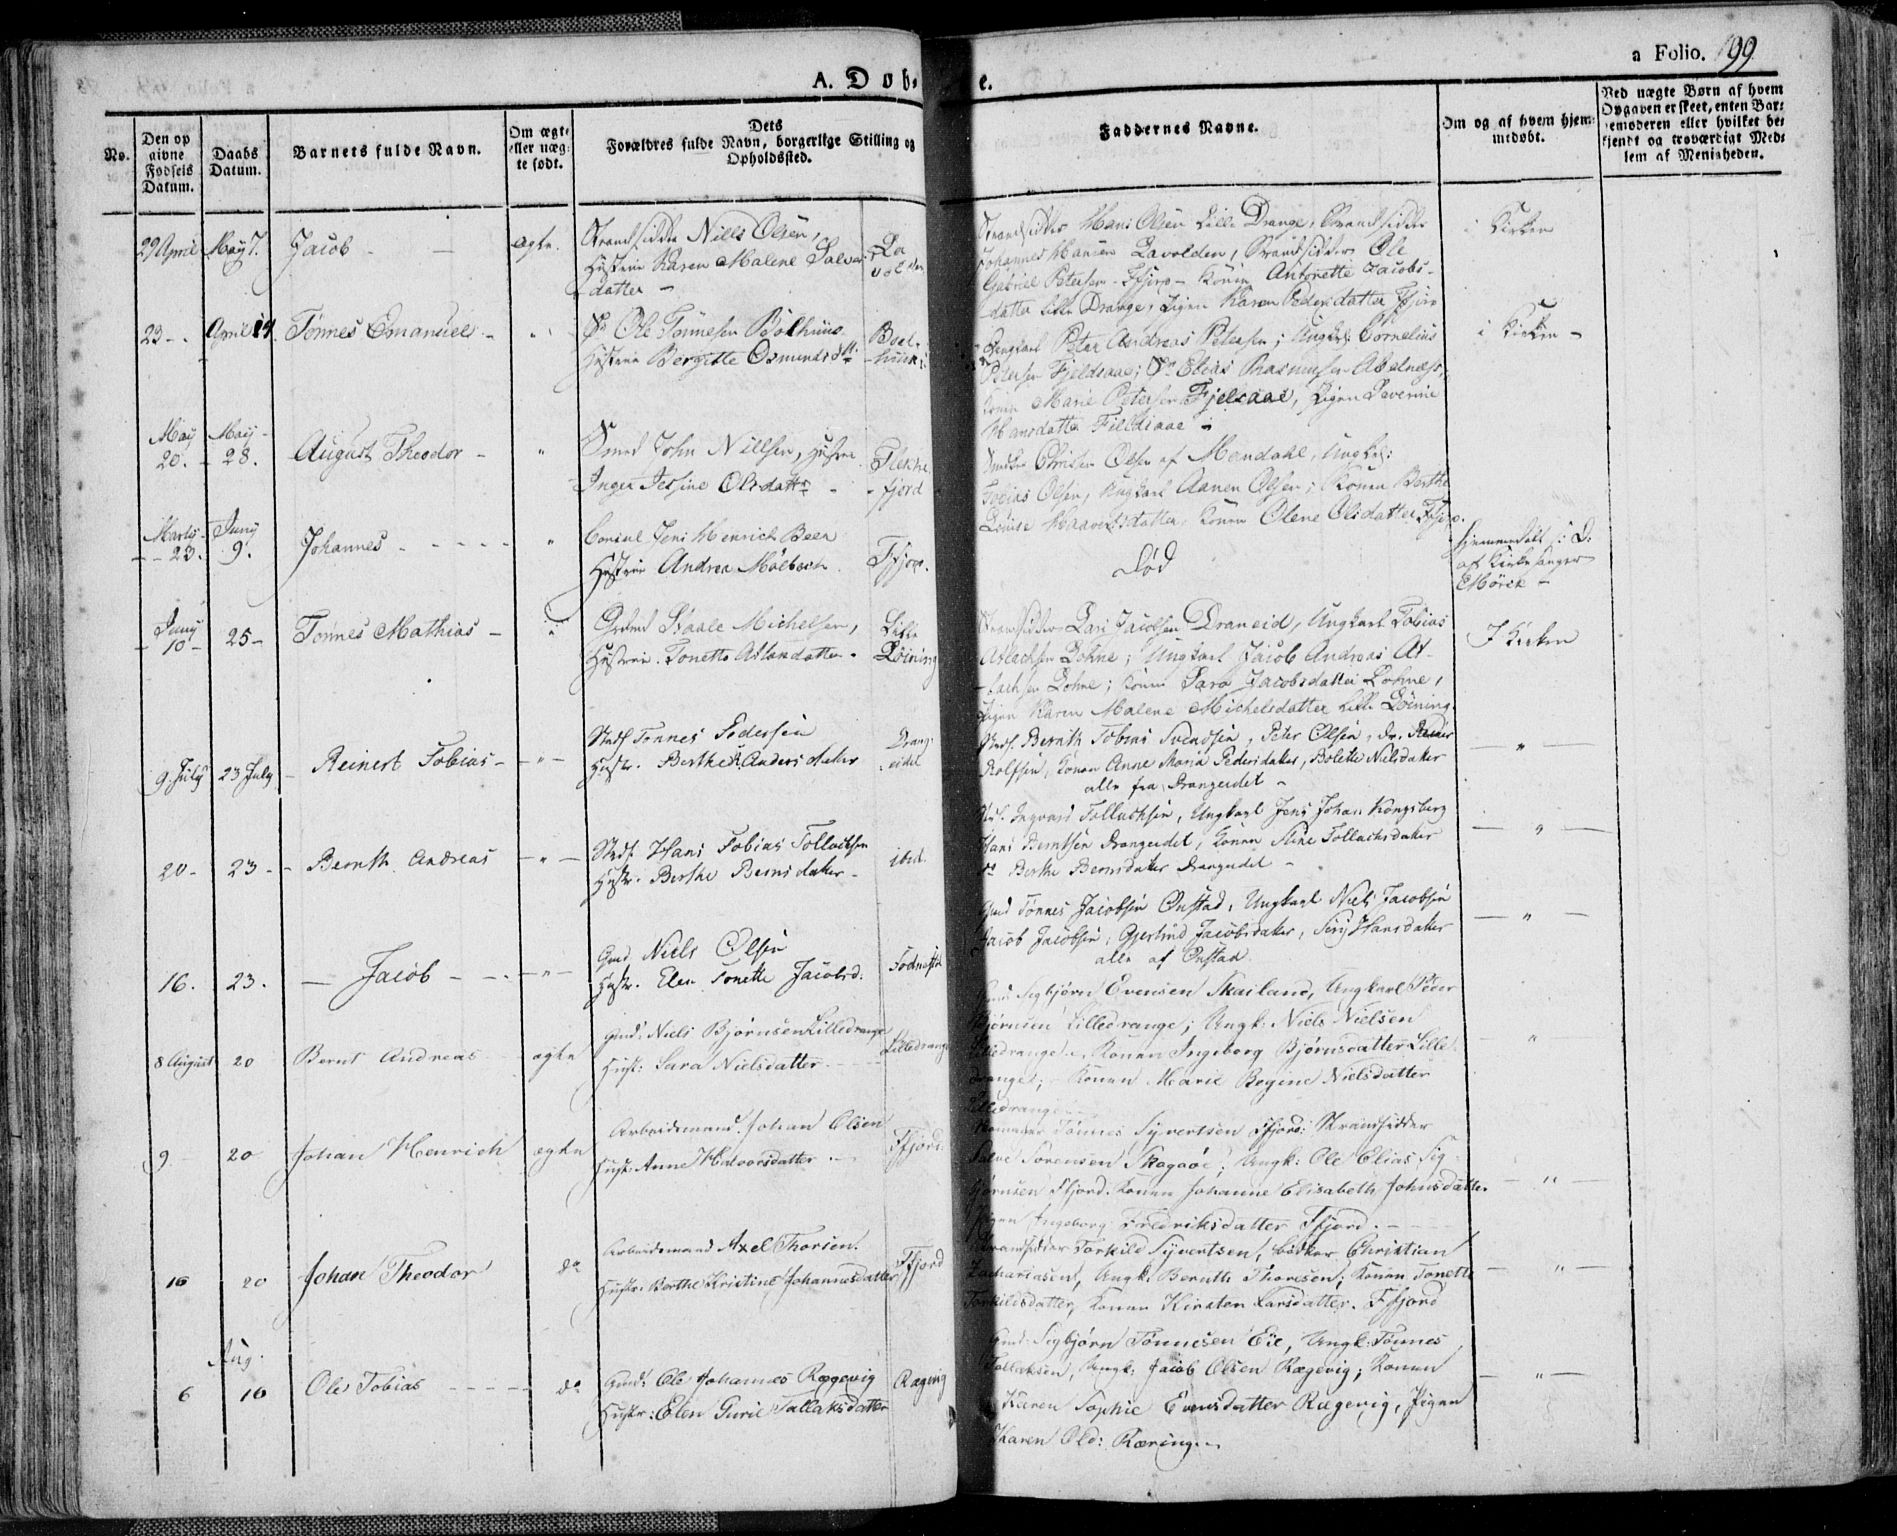 A. Døbte.
a Folio. 199
No.
Den op
givne
Fødsels
Datum.
Daabs
Datum.
Barnets fulde Navn.
Om ægte
eller uæg-
te født.
Dets
Forældres fulde Navn, borgerlige Stilling og
Opholdssted.
Faddernes Navne.
Om og af hvem hjem-
medøbt.
Ved uægte Børn af hvem
Opgaven er skeet, enten Bar-
nemoderen eller hvilket be-
kjendt og troværdigt Med-
lem af Menigheden.
29 April May 7. Jacob - ægte. Strandsidder Niels Olsen,
Hustrue Karen Malene Salve-
datter -
Strandsidder Hans Olsen Lille Drange, Strandsidder
Johannes Hansen Lavolden, Strandsidder Ole
Gabriel Petersen Ffjord - Konen Antonette Jacobs-
datter Lille Drange, Pigen Karen Pedersdatter Ffjord
i Kirken
23 - April 24. Tønnes Emanuel - " Ole Tønnesen Bølhuus
Hustrue Bergitte Osmundsdtr
Boel-
huus
Ungkarl Peter Andreas Petersen; Ungkarl Cornelius
Petersen Fjeldsaae; Elias Rasmusen Abelnæs,
Konen Marie Petersen Fjelsaae, Pigen Laverine
Hansdatter Fieldsaae -
i Kirken -
May 20. May 28. August Theodor - " Smed John Nielsen, Hustrue
Inger Jesine Olsdattr -
Flekke
fjord
Christen Olsen af Mandahl, Ungkarl:
Tobias Olsen, Ungkarl Aanen Olsen; Konen Berthe
Louise Haaversdatter, Konen Olene Olsdatter Ffjord.
Marts 23. Juny 9. Johannes - - - - " Jens Henrich Beer
Hustrue Andrea Mølbach
Ffjord.
Død
hjemmedøbt
af Kirkesanger
Mørch -
Juny 10 25 - Tønnes Mathias - " Staale Michelsen,
Hustrue. Tonette Atlaksdatter.
Lille
Løining
Strandsidder Lars Jacobsen Draneid, Ungkarl Tobias
Atlachsen Lohne; Ungkarl Jacob Andreas At-
lachsen Lohne; Konen Sara Jacobsdatter Lohne,
Pigen Karen Malene Michelsdatter Lille Løining.
I Kirken
9 July 23 July - Reinert Tobias - - " - Stds. Tønnes Pedersen
Hustr. Berthe Andersdatter
Drang-
eidet
Stds. Bernth Tobias Svendsen, Peter Olsen, Reiner
Rolfsen, Konen Anne Maria Pedersdatter, Bolette Nielsdatter
alle fra Drangeidet -
- " -
20 - 23 - - Bernth Andreas - " - Stds. Hans Tobias Tollachsen
Hustr. Berthe Berntsdatter -
ibid.
Stds. Ingvard Tollachsen, Ungkarl Jens Johan Kongsberg
Hans Berntsen Drangeidet, Konen Stine Tollachsdatter
Berthe Berntsdatter Drangeidet -
- " -
16. 23. - Jacob - - - " - Gmd Niels Olsen
Hustr. Elen Tonette Jacobsd.
Gmd Tønnes Jacobsen Onstad, Ungkarl Niels Jacobsen
Jacob Jacobsen, Gjertrud Jacobsdatter, Siri Hansdatter
alle af Onstad.
- " -
8 August 20 Bernt Andreas ægte Gmd: Niels Bjørnsen Lilledrange
Hust: Sara Nielsdatter
Lilledrange
Gmd: Sigbjørn Evensen Skailand, Ungkarl Peder
Bjørnsen Lilledrange; Ungk: Niels Nielsen
Lilledrange, Konen Ingeborg Bjørnsdatter Lille
drange; Konen Marie Regine Nielsdatter
Lilledrange
- " -
9 20 Johan Henrich ægte Arbeidsmand. Johan Olsen
Hust: Anne Halvorsdatter -
Ffjord:
Tønnes Syvertsen Ffjord: Strandsidder
Salve Sørensen Skagaøe; Ungk: Ole Elias Sig-
bjørnsen Ffjord. Konen Johanne Elisabeth Johnsdatter
Pigen Ingeborg Fredriksdatter Ffjord. -
- " -
16 20 Johan Theodor do Arbeidsmand Axel Thorsen.
Hustr: Berthe Kristine Johannesdatter
Ffjord
Strandsidder Torkild Syvertsen, bødker Christian
Zachariasen, Ungk. Bernth Thorsen; Konen Tonette
Torkildsdatter, Konen Kirsten Larsdatter. Ffjord
- " -
6 Aug. 16 Ole Tobias - - - - do Gmd: Ole Johannes Rægevig
Hustr: Elen Gurie Tallaksdatter
Rægevig
Gmd: Sigbjørn Tønnesen Eie, Ungk: Tønnes
Tollaksen, Ungk: Jacob Olsen Rægevig; Konen
Karen Sophie Evensdatter Rægevig, Pigen
Karen Olsd: Ræring. -
- " -